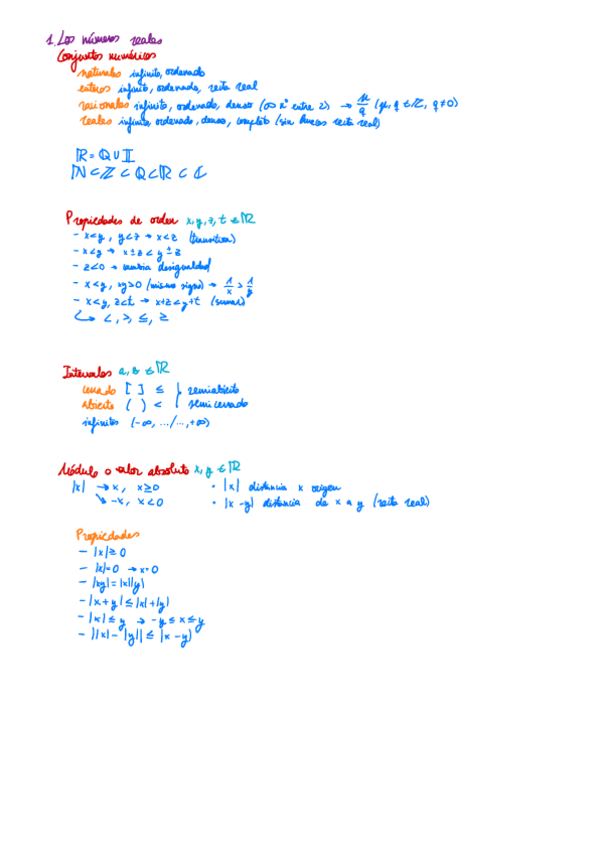 1. Los números reales
Conjuntos numéricos
naturales infinito, ordenado
enteros infinito, ordenado, recta real
racionales infinito, ordenado, denso (∞ nº entre 2) → p/q (p, q ∈ ℤ, q≠0)
reales infinito, ordenado, denso, completo (sin huecos recta real)
ℝ = ℚ ∪ 𝕀
ℕ ⊂ ℤ ⊂ ℚ ⊂ ℝ ⊂ ℂ
Propiedades de orden x, y, z, t ∈ ℝ
- x<y, y<z → x<z (transitiva)
- x<y → x±z < y±z
- z<0 → cambia desigualdad
- x<y, xy>0 (mismo signo) → 1/x > 1/y
- x<y, z<t → x+z<y+t (sumar)
↳ <, >, ≤, ≥
Intervalos a, b ∈ ℝ
cerrado [ ] ≤ } semiabierto
abierto ( ) < semicerrado
infinitos (-∞, .../..., +∞)
Módulo o valor absoluto x, y ∈ ℝ
|x| → x, x≥0 • |x| distancia x origen
↘ -x, x<0 • |x-y| distancia de x a y (recta real)
Propiedades
- |x|≥0
- |x|=0 → x=0
- |xy|=|x||y|
- |x+y|≤|x|+|y|
- |x|≤y → -y≤x≤y
- ||x|-|y||≤|x-y|